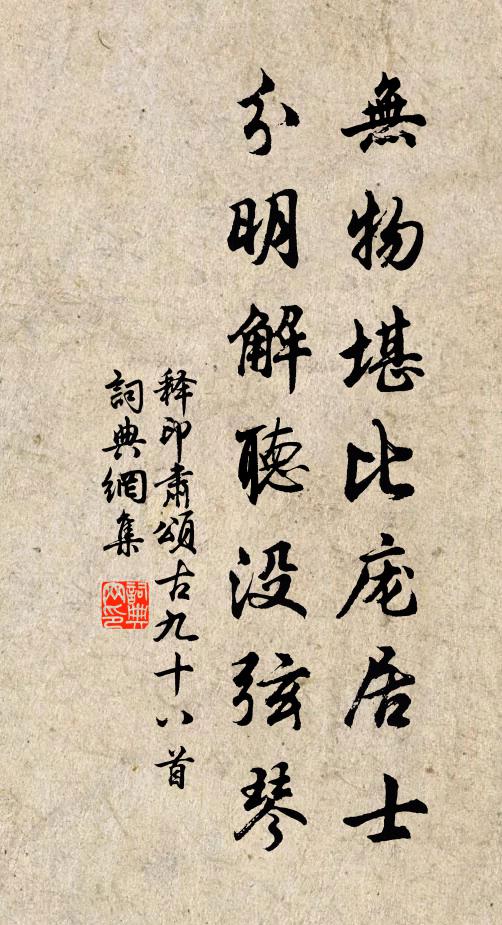 無物堪比庞居士
分明解聽没弦琴
释印肅頌古九十八首
詞典網集
詞典網印